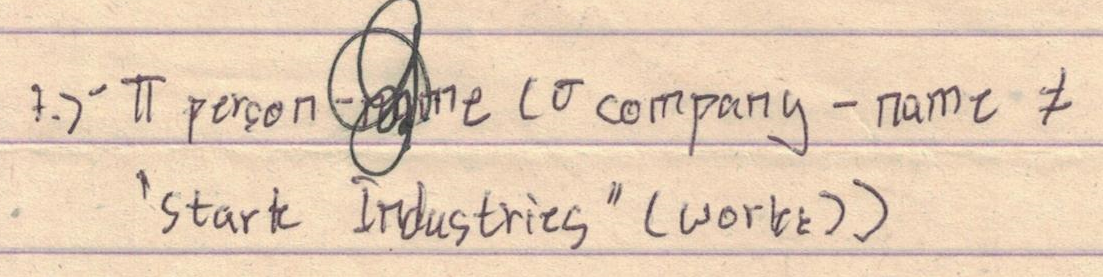 7.) π person-name (σ company-name ≠
'Stark Industries" (works))